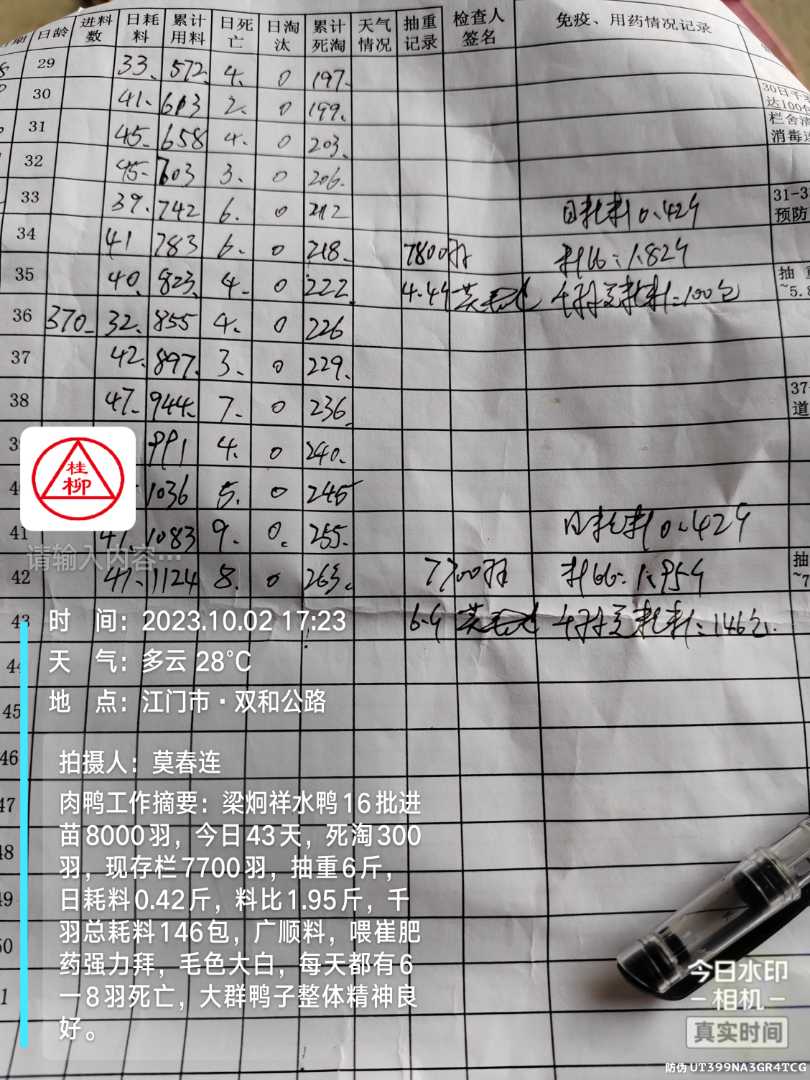 日龄 进料数 日耗料 累计用料 日死亡 日淘汰 累计死淘 天气情况 抽重记录 检查人签名 免疫、用药情况记录
29 33. 572 4. 0 197.
30 41. 613 2. 0 199.
31 45. 658 4. 0 203.
32 45. 703 3. 0 206.
33 39. 742 6. 0 212 日耗料0.42斤
34 41 783 6. 0 218. 7800羽 料比:1.82斤
35 40. 823. 4. 0 222. 4.4斤 千羽总耗料:100包
36 370. 32. 855 4. 0 226
37 42. 897. 3. 0 229.
38 47. 944. 7. 0 236.
991 4. 0 240.
1036 5. 0 245
41 47. 1083 9. 0. 255. 日耗料0.42斤
42 41. 1124 8. 0 263. 7700羽 料比:1.95斤
43 6斤 千羽总耗料:146包.
44
45
46
47
48
49
50
30日千
消毒
31-3
预防
抽重
~5.8
37-
道
抽
桂柳
请输入内容…
时 间：2023.10.02 17:23
天 气：多云 28°C
地 点：江门市·双和公路
拍摄人：莫春连
肉鸭工作摘要：梁炯祥水鸭16批进
苗8000羽，今日43天，死淘300
羽，现存栏7700羽，抽重6斤，
日耗料0.42斤，料比1.95斤，千
羽总耗料146包，广顺料，喂崔肥
药强力拜，毛色大白，每天都有6
一8羽死亡，大群鸭子整体精神良
好。
今日水印
相机
真实时间
防伪 UT399NA3GR4TCG